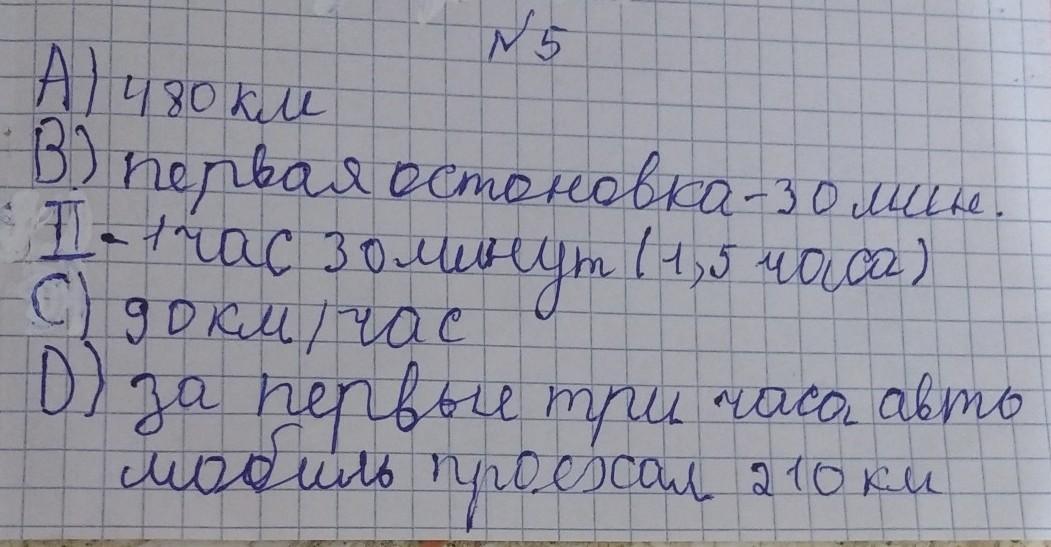 №5
A) 480 км
B) первая остоновка - 30 мин.
II - 1 час 30 минут (1,5 часа)
C) 90 км/час
D) за первые три часа авто
мобиль проежал 210 км